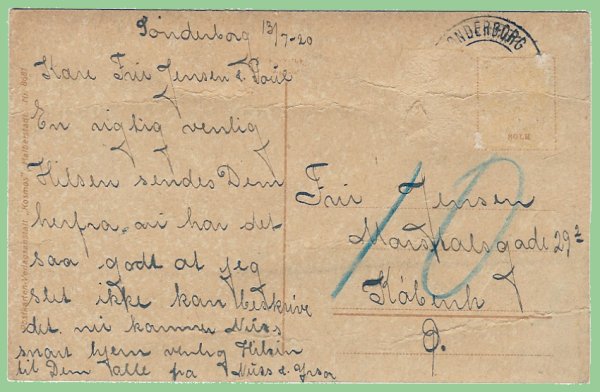 Sønderborg 13/7-20
Kære Fru Jensen & Poul
En rigtig venlig
Hilsen sendes Dem
herfra. vi har det
saa godt at jeg
slet ikke kan beskrive
det. vi kommer
snart hjem venlig Hilsen
til Dem alle fra
SONDERBORG
Fru Jensen
Marstalsgade 29²
København
Ø.
10